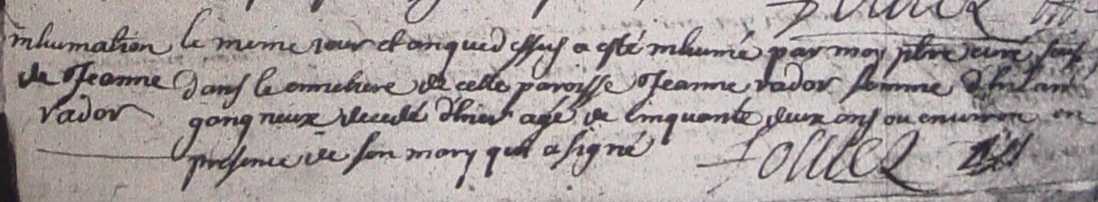 inhumation
de Jeanne
Vador
le meme jour et an que dessus a esté inhumé par moy pbre curé sous
dans le cimetiere de cette paroisse Jeanne Vador femme
gangneux decedé d'hier agé de cinquante deux ans ou environ en
presence de son mary qui a signé